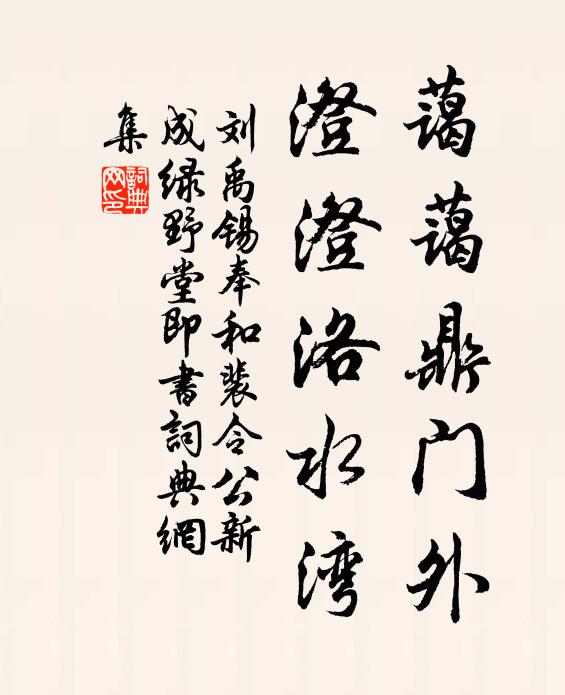 蔼蔼鼎门外
澄澄洛水湾
刘禹锡奉和裴令公新
成绿野堂即书詞典網
集
詞典
网印